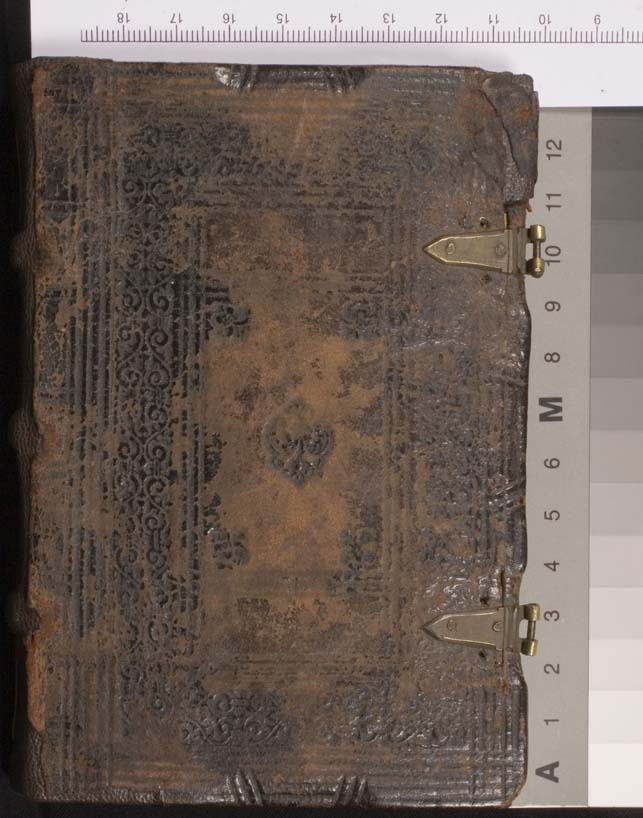 18 17 16 15 14 13 12 11 10 9
12
11
10
9
8
M
6
5
4
3
2
1
A